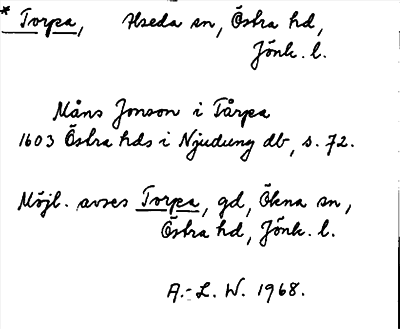 * Torpa, Hseda sn, Östra hd,
Jönk. l.
Måns Jonson i Tårpa
1603 Östra hds i Njudung db, s. 72.
Möjl. avses Torpa, gd, Ökna sn,
Östra hd, Jönk. l.
A.-L. W. 1968.